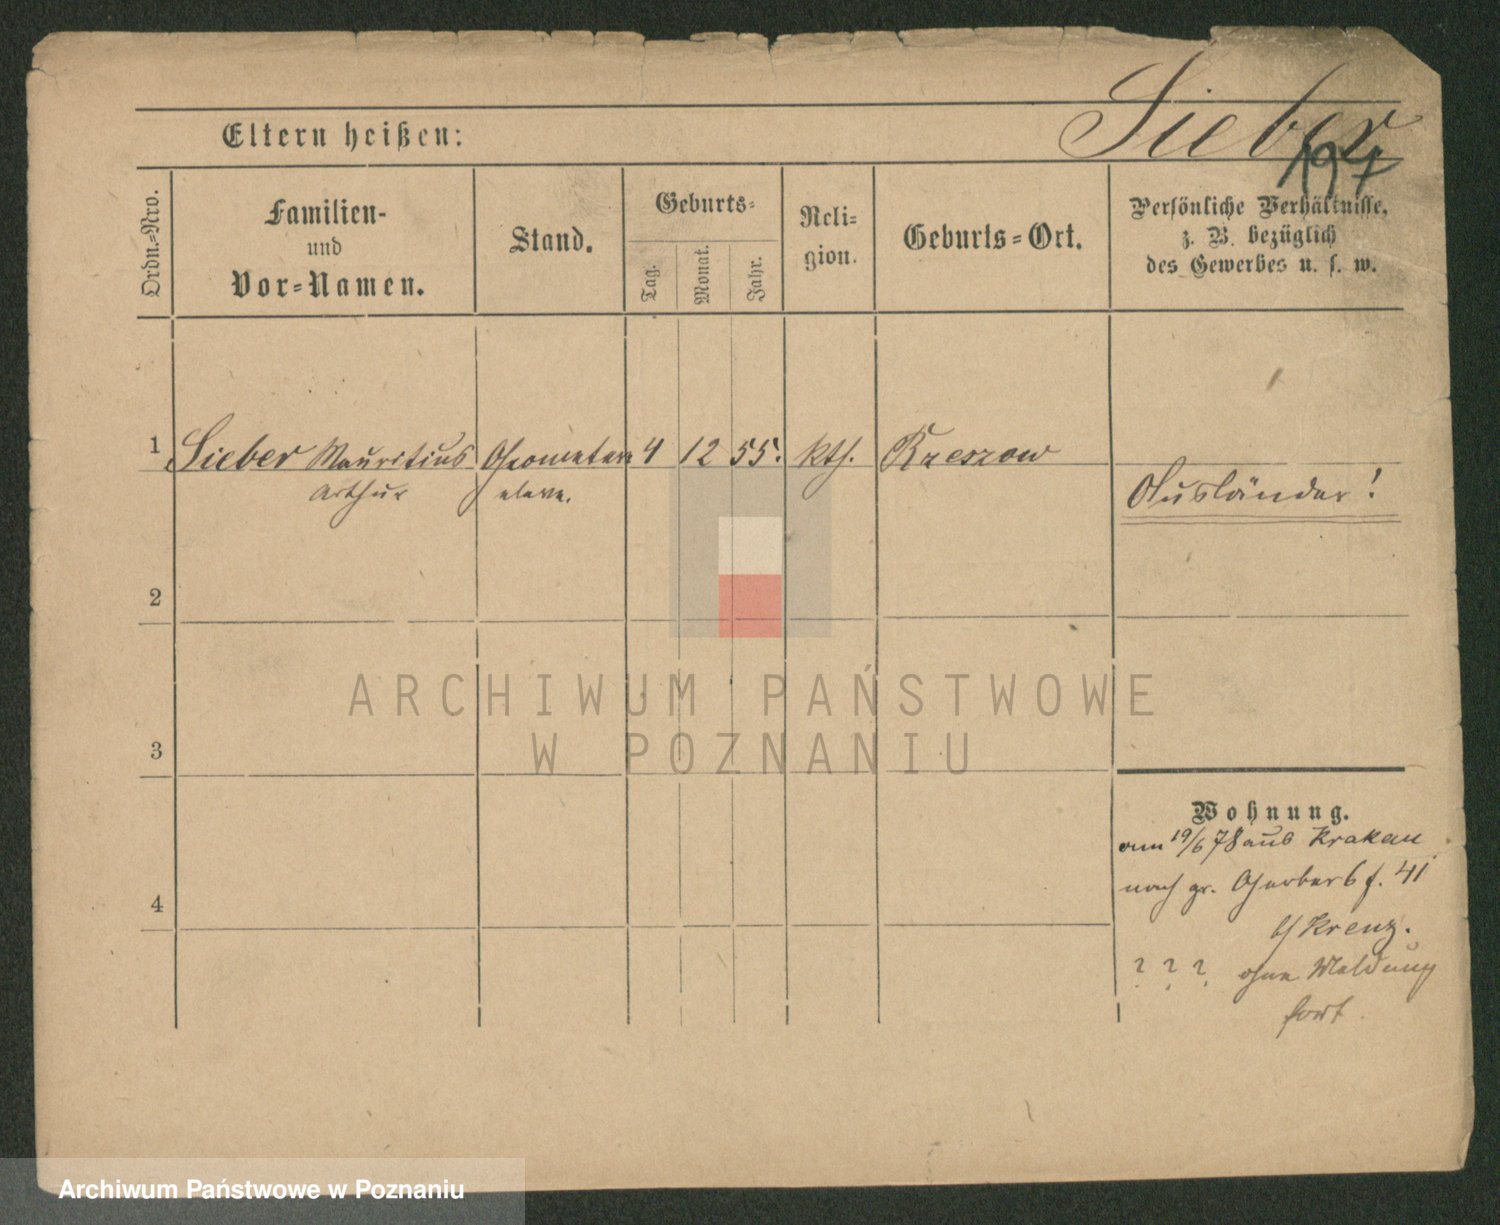 Sieber
197
Eltern heißen:
Ordn.-Nro.
Familien-
und
Vor-Namen.
Stand.
Geburts-
Tag.
Monat.
Jahr.
Reli-
gion.
Geburts-Ort.
Persönliche Verhältnisse,
z. B. bezüglich
des Gewerbes u. s. w.
1 Sieber Mauritius Geometer 4 12 55. kth. Rzeszow
Arthur eleve.
Ausländer!
2
3
4
Wohnung.
am 19/6 78 aus Krakau
nach gr. Gerberst. 41
b/ Krenz.
? ? ? ohne Meldung
fort.
ARCHIWUM PAŃSTWOWE
W POZNANIU
Archiwum Państwowe w Poznaniu